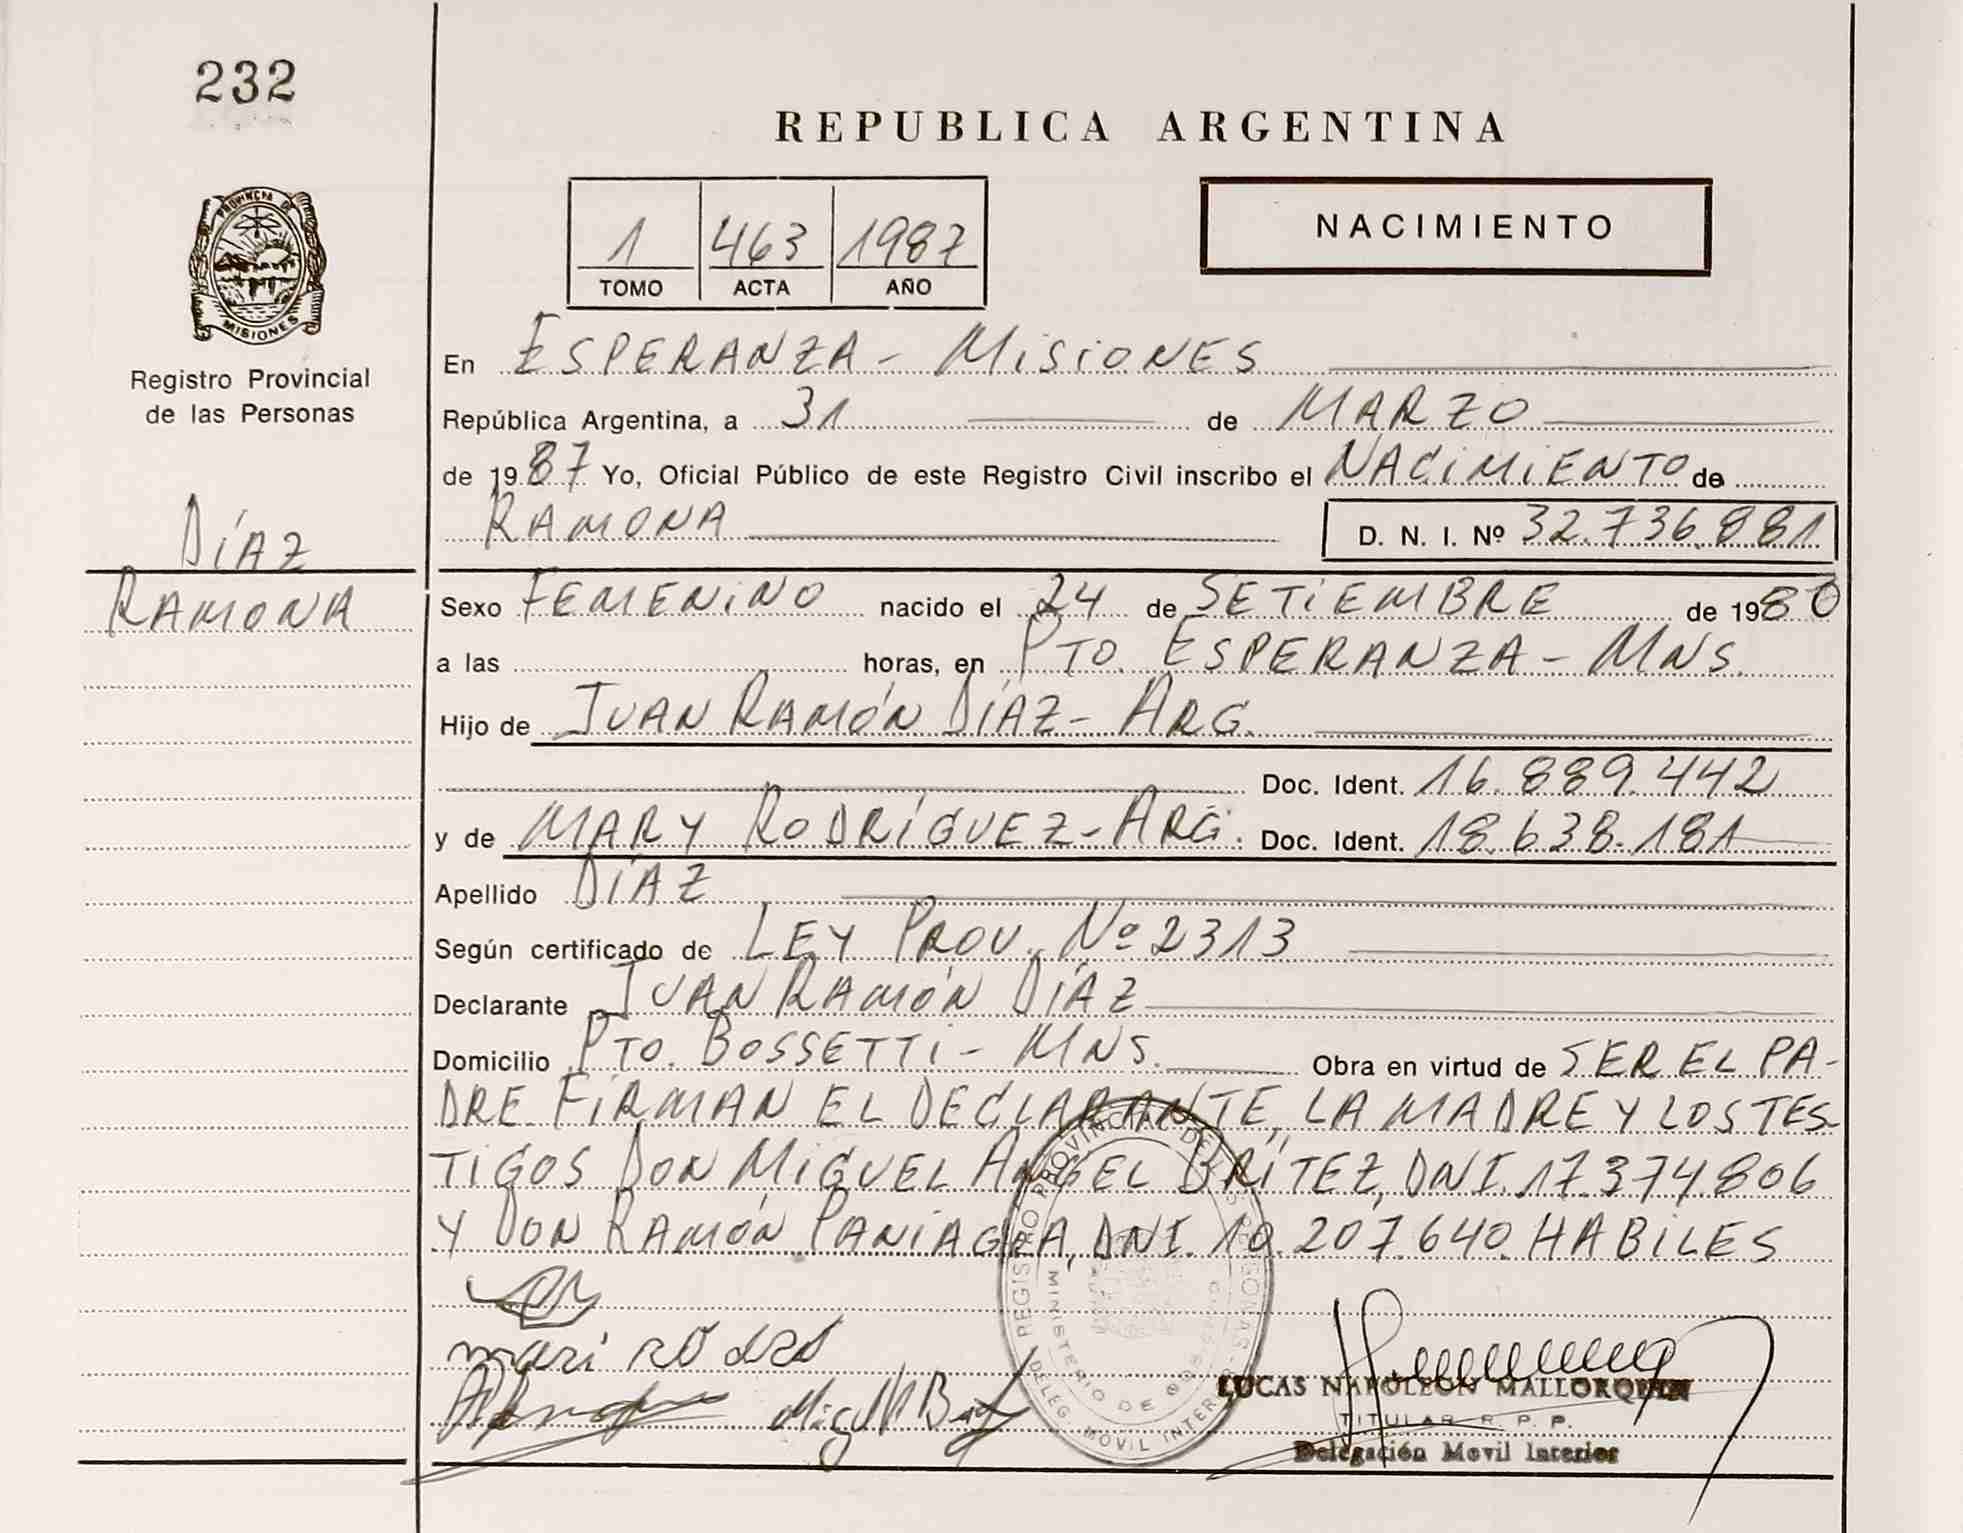 232
REPUBLICA ARGENTINA
PROVINCIA DE
MISIONES
Registro Provincial
de las Personas
1 463 1987
TOMO ACTA AÑO
NACIMIENTO
En ESPERANZA - MISIONES
República Argentina, a 31 de MARZO
de 1987 Yo, Oficial Público de este Registro Civil inscribo el NACIMIENTO de
RAMONA D. N. I. Nº 32.736.881
DÍAZ
RAMONA
Sexo FEMENINO nacido el 24 de SETIEMBRE de 1980
a las horas, en PTO. ESPERANZA - MNS.
Hijo de JUAN RAMÓN DÍAZ - ARG.
Doc. Ident. 16.889.442
y de MARY RODRÍGUEZ - ARG. Doc. Ident. 18.638.181
Apellido DÍAZ
Según certificado de LEY PROV. Nº 2313
Declarante JUAN RAMÓN DÍAZ
Domicilio PTO. BOSSETTI - MNS. Obra en virtud de SER EL PA-
DRE. FIRMAN EL DECLARANTE, LA MADRE Y LOS TES-
TIGOS DON MIGUEL ANGEL BRÍTEZ, DNI. 17.374.806
Y DON RAMÓN PANIAGUA, DNI. 10.207.640. HABILES
REGISTRO PROVINCIAL DE LAS PERSONAS
MINISTERIO DE GOBIERNO
DELEG. MOVIL INTERIOR
mari
LUCAS NAPOLEON MALLORQUIN
TITULAR R. P. P.
Delegación Movil Interior